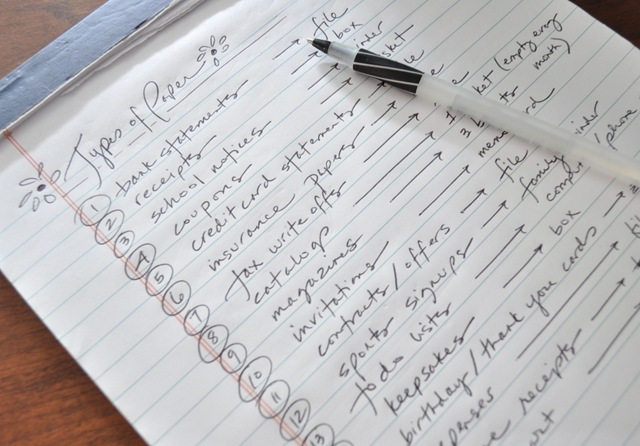 Types of Paper
① bank statements → file
② receipts → box
③ school notices →
④ coupons →
⑤ credit card statements →
⑥ insurance papers →
⑦ tax write offs →
⑧ catalogs → (empty every month)
⑨ magazines → 3
⑩ invitations →
⑪ contracts / offers → file
⑫ sports signups → family
⑬ to do lists → / phone
keepsakes → box
birthday / thank you cards →
receipts →